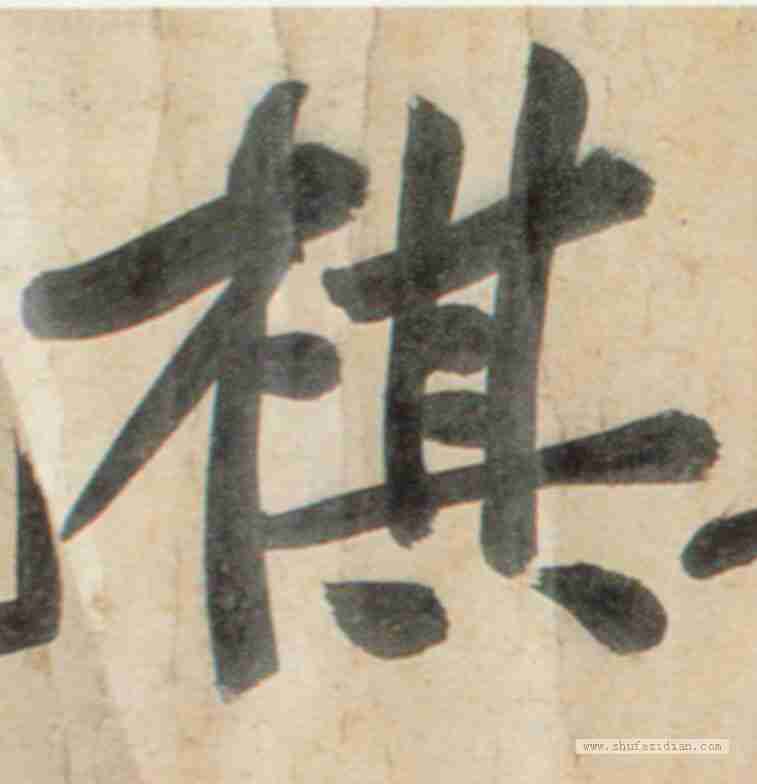 棋
www.shufazidian.com